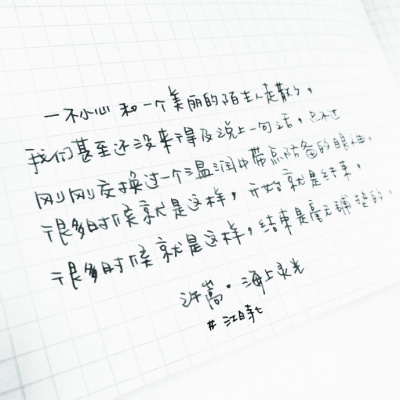 一不小心和一个美丽的陌生人走散了，
我们甚至还没来得及说上一句话，只不过
刚刚交换过一个温润中带点防备的眼神。
很多时候就是这样，开始就是结束，
很多时候就是这样，结束是毫无铺垫的。
许嵩·海上灵光
#